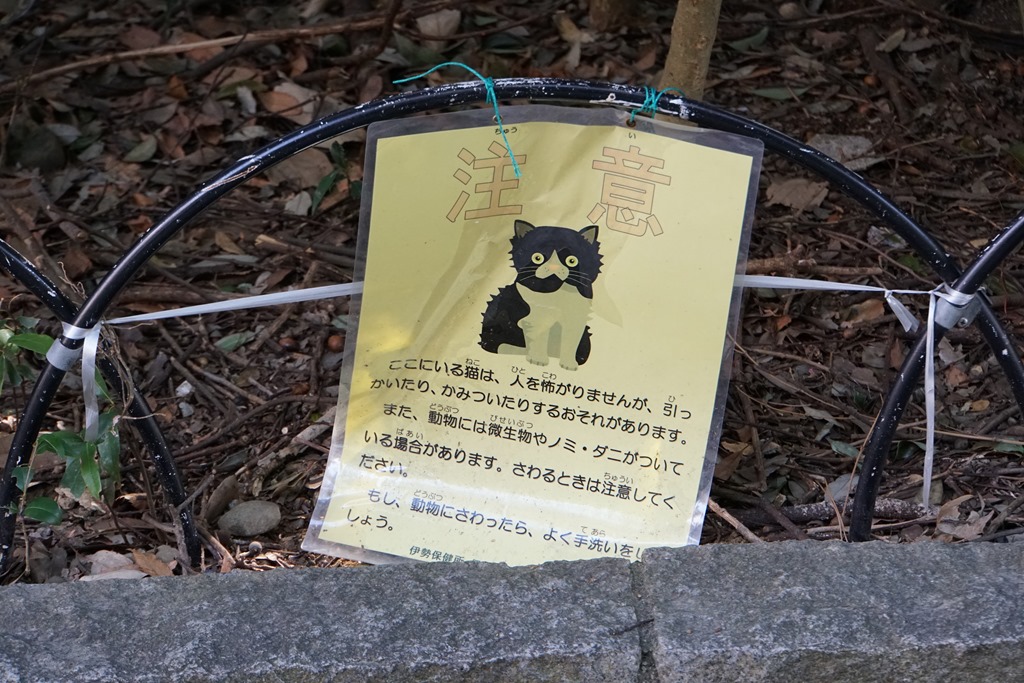 注意
ここにいる猫は、人を怖がりませんが、引っ
かいたり、かみついたりするおそれがあります。
また、動物には微生物やノミ・ダニがついて
いる場合があります。さわるときは注意してく
ださい。
もし、動物にさわったら、よく手洗いをし
しょう。
伊勢保健所